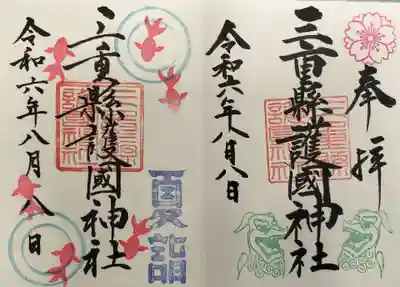 奉拝
三重縣護國神社
令和六年八月八日
三重縣護國神社
夏詣
令和六年八月八日